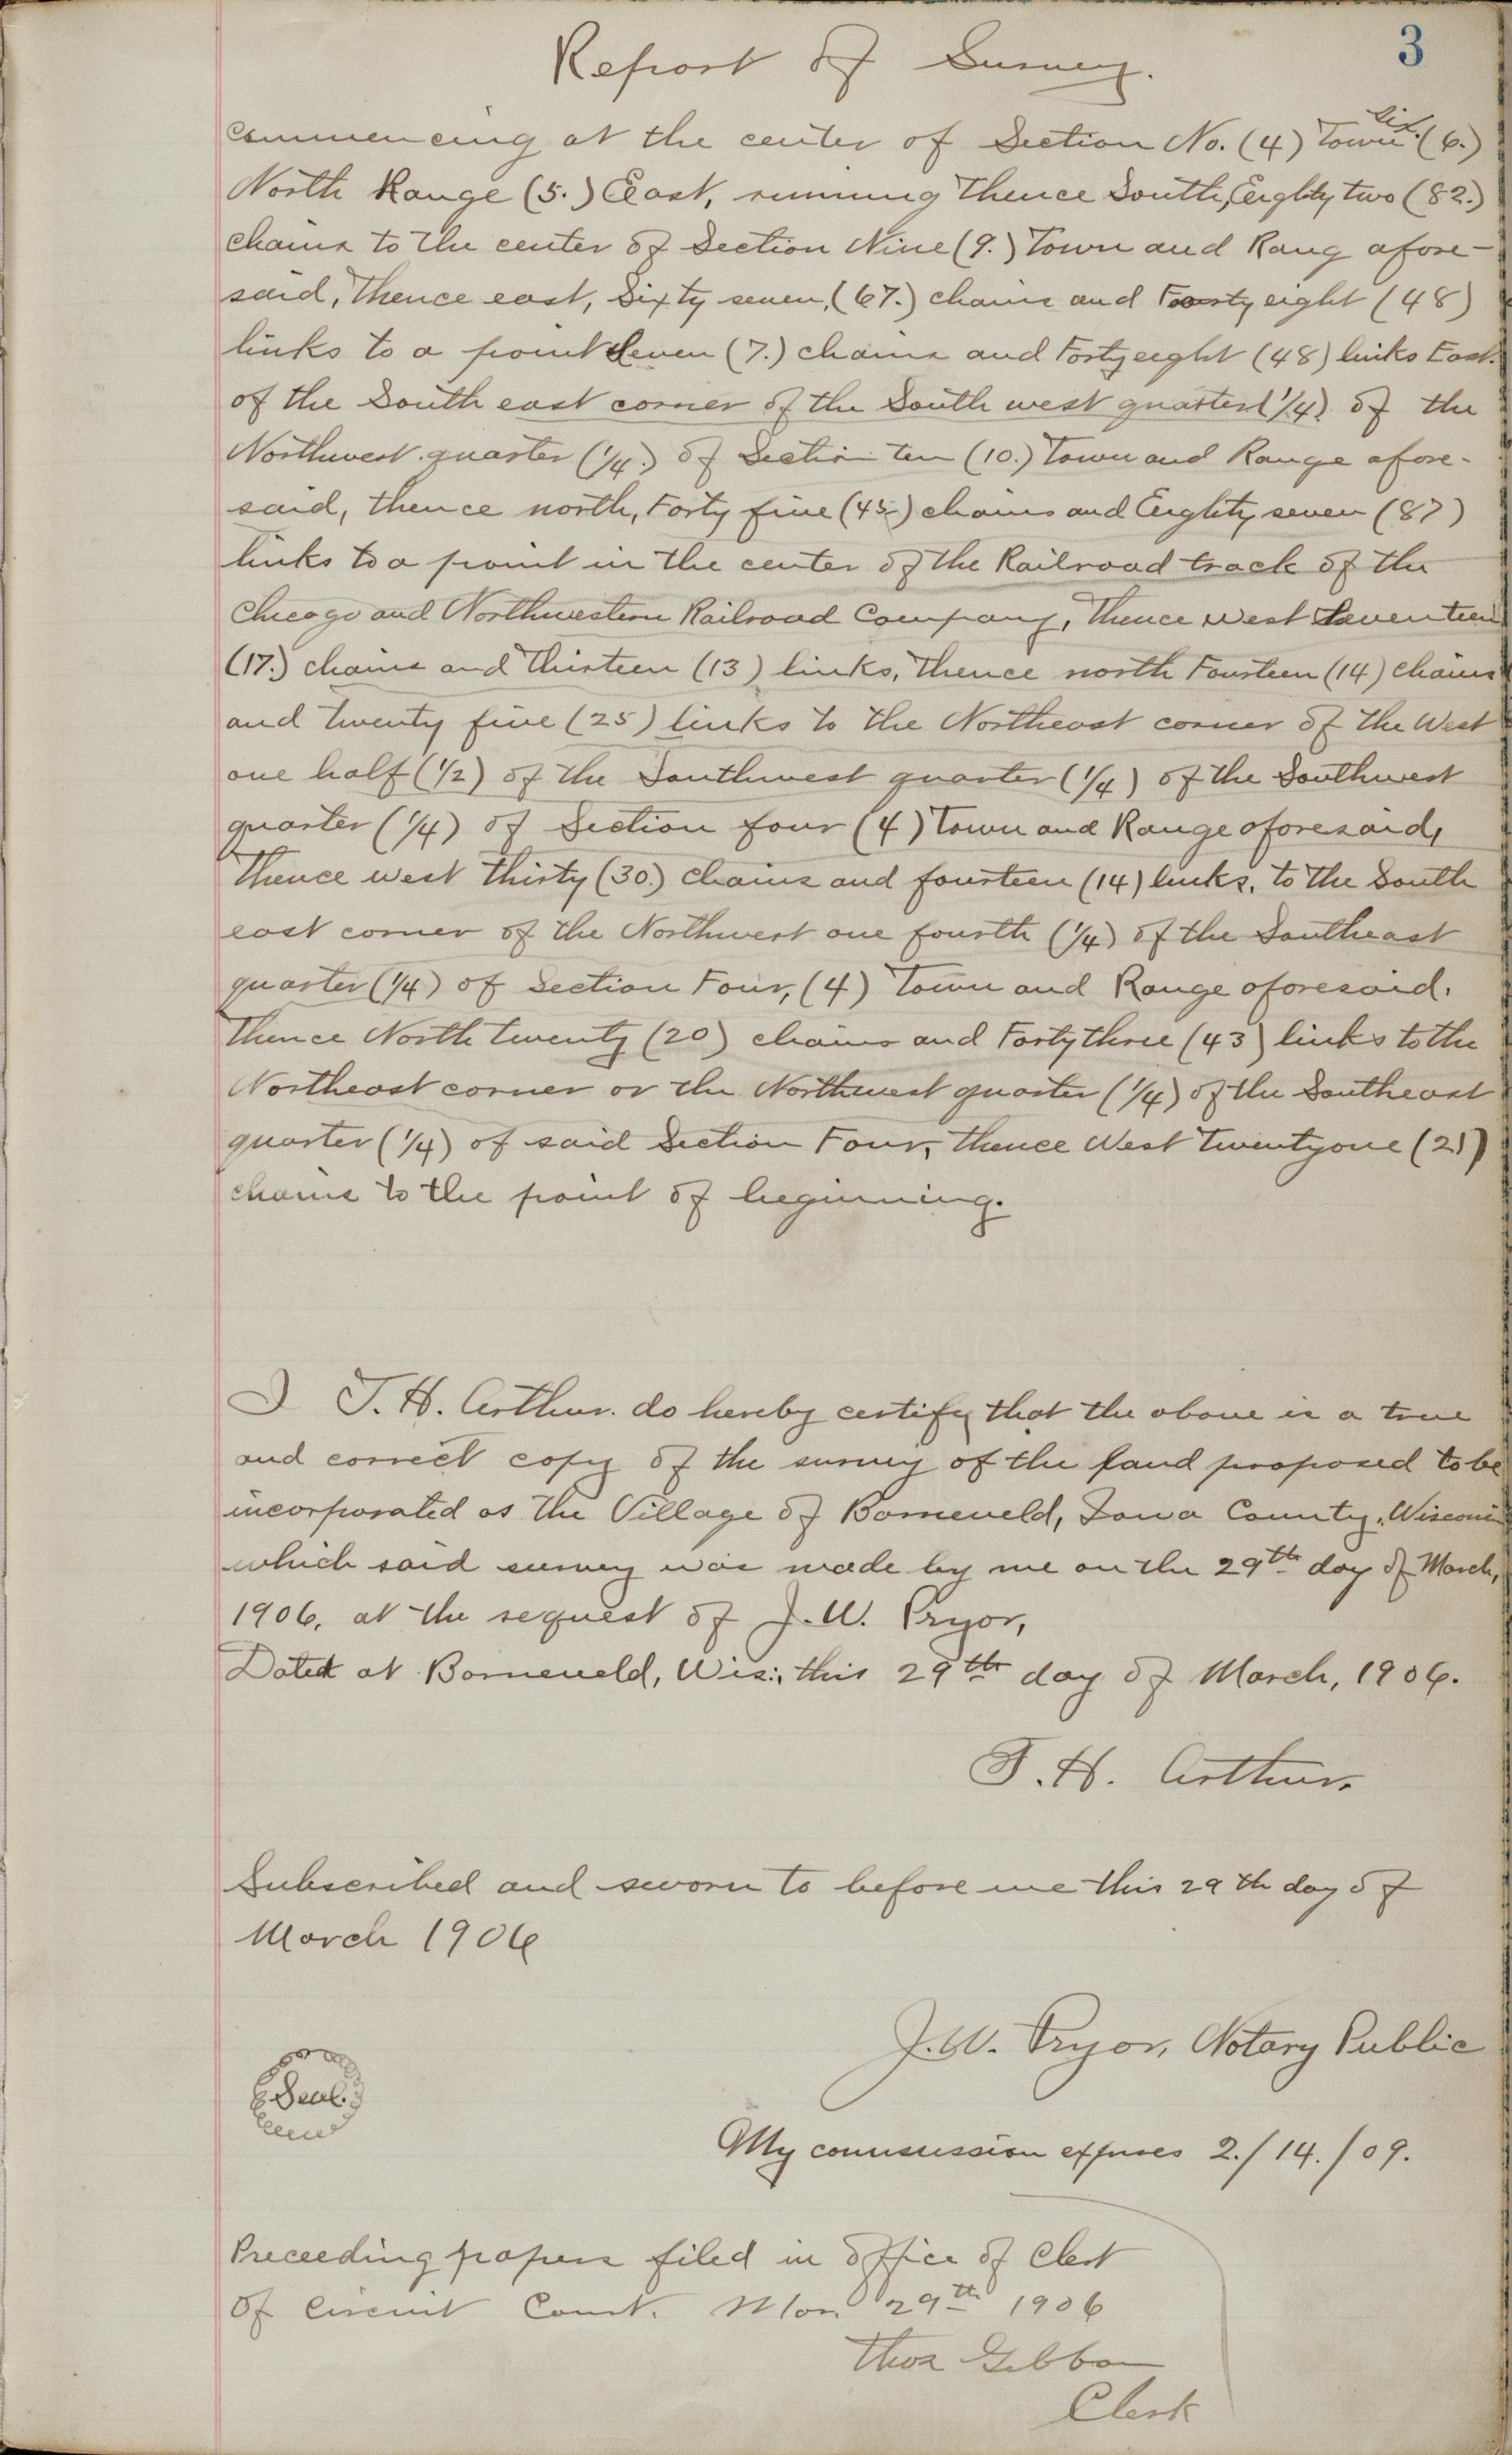 3
Report of Survey.
Commencing at the center of Section No. (4) Town Six. (6.)
North Range (5.) East, running Thence South, Eighty two (82.)
chains to the center of Section Nine (9.) Town and Rang afore-
said, Thence east, Sixty seven, (67.) chains and Foorty eight (48)
links to a point Seven (7.) chains and Forty eight (48) links East.
of the South east corner of the South west quarter (1/4) of the
Northwest quarter (1/4.) of Section ten (10.) Town and Range afore-
said, thence north, Forty five (45) chains and Eighty seven (87)
links to a point in the center of the Railroad track of the
Chicago and Northwestern Railroad Company, Thence west Seventeen
(17.) chains and Thirteen (13) links, Thence north Fourteen (14) chains
and twenty five (25) links to the Northeast corner of the West
one half (1/2) of the Southwest quarter (1/4) of the Southwest
quarter (1/4) of Section four (4) Town and Range aforesaid,
Thence west thirty (30.) chains and fourteen (14) links, to the South
east corner of the Northwest one fourth (1/4) of the Southeast
quarter (1/4) of Section Four, (4) Town and Range aforesaid,
Thence North twenty (20) chains and Forty three (43) links to the
Northeast corner or the Northwest quarter (1/4) of the Southeast
quarter (1/4) of said Section Four, thence West Twentyone (21)
chains to the point of beginning.
I T. H. Arthur. do hereby certify that the above is a true
and correct copy of the survey of the land proposed to be
incorporated as the Village of Barneveld, Iowa County, Wisconsin
which said survey was made by me on the 29th day of March,
1906, at the request of J. W. Pryor,
Dated at Barneveld, Wis., this 29th day of March, 1906.
T. H. Arthur.
Subscribed and sworn to before me this 29th day of
March 1906
J. W. Pryor, Notary Public
Seal.
My commission expires 2./14./09.
Preceeding papers filed in office of Clerk
of Circuit Court. Mar 29th 1906
Thos Gibbon
Clerk